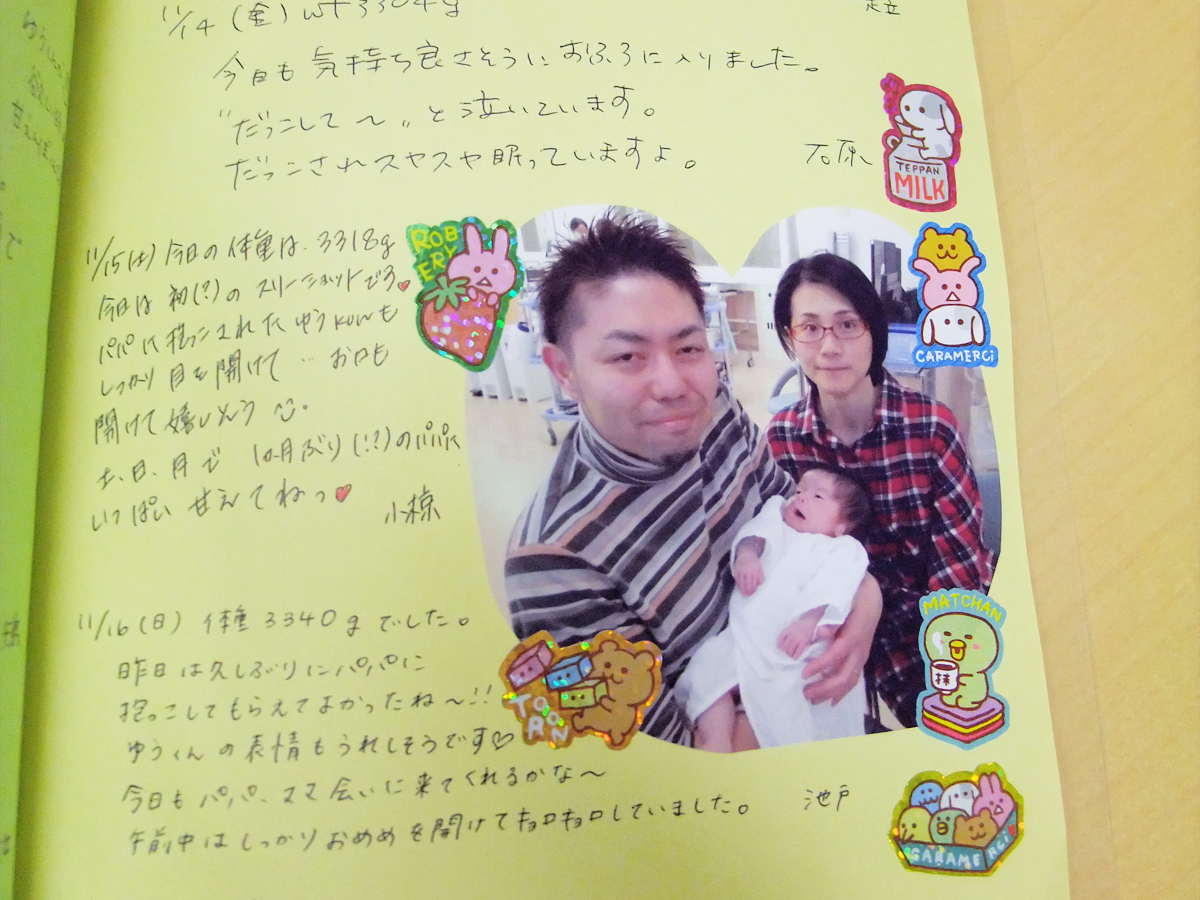 11/14(金) wt 3304g
今日も気持ち良さそうにおふろに入りました。
"だっこして〜"と泣いています。
だっこされスヤスヤ眠っていますよ。
石原
TEPPAN
MILK
11/15(土) 今日の体重は、3318g
今日は初(!?)のスリーショットです♥
パパに抱っこされたゆうkunも
しっかり目を開けて…お口も
開けて嬉しそう
土、日、月で 1か月ぶり(!?)のパパに
いっぱい甘えてねっ♥
小椋
ROB
ERY
CARAMERCi
11/16(日) 体重3340gでした。
昨日は久しぶりにパパに
抱っこしてもらえてよかったね〜!!
ゆうくんの表情もうれしそうです♡
今日もパパ、ママ会いに来てくれるかな〜
午前中はしっかりおめめを開けてキョロキョロしていました。
池戸
MATCHAN
抹
TORON
CARAMERCi